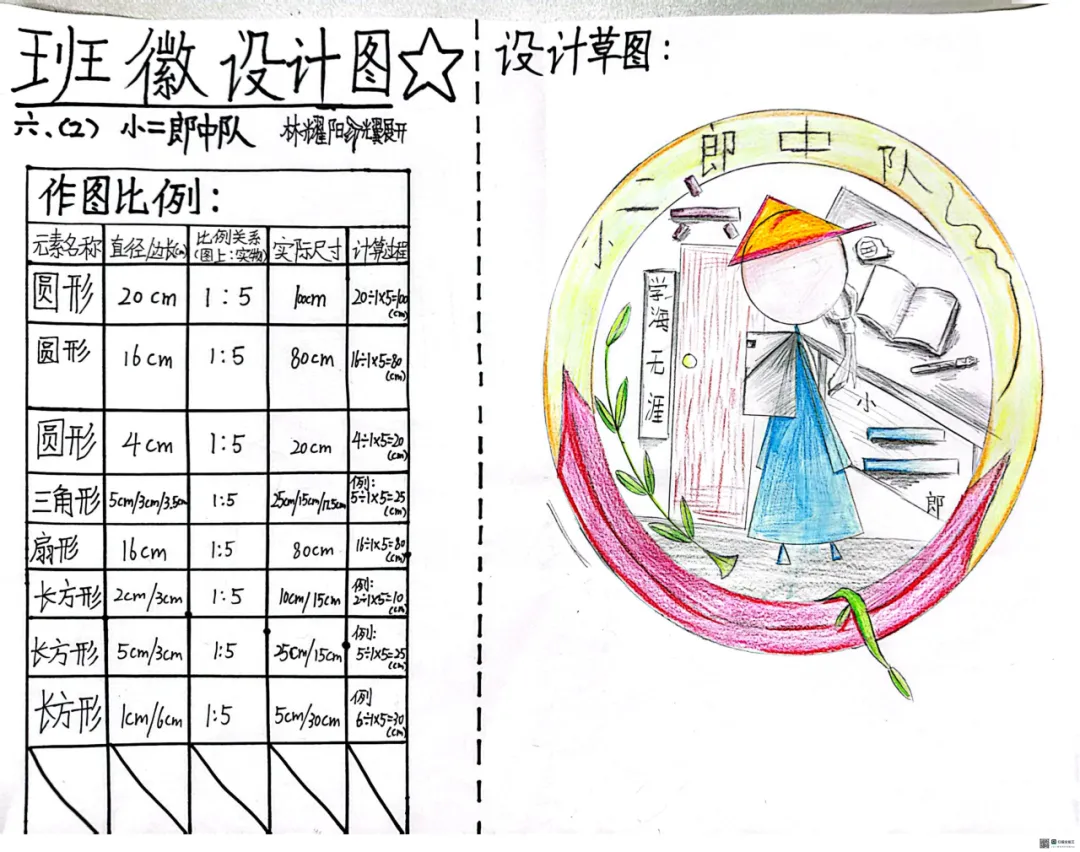 班徽设计图
六.(2) 小二郎中队 林耀阳
作图比例:
元素名称 直径/边长(cm) 比例关系(图上:实物) 实际尺寸 计算过程
圆形 20cm 1:5 100cm 20÷1×5=100(cm)
圆形 16cm 1:5 80cm 16÷1×5=80(cm)
圆形 4cm 1:5 20cm 4÷1×5=20(cm)
三角形 5cm/3cm/3.5cm 1:5 25cm/15cm/17.5cm 例:5÷1×5=25(cm)
扇形 16cm 1:5 80cm 16÷1×5=80(cm)
长方形 2cm/3cm 1:5 10cm/15cm 例:2÷1×5=10(cm)
长方形 5cm/3cm 1:5 25cm/15cm 例:5÷1×5=25(cm)
长方形 1cm/6cm 1:5 5cm/30cm 例 6÷1×5=30(cm)
设计草图:
小二郎中队
学海无涯
小
郎